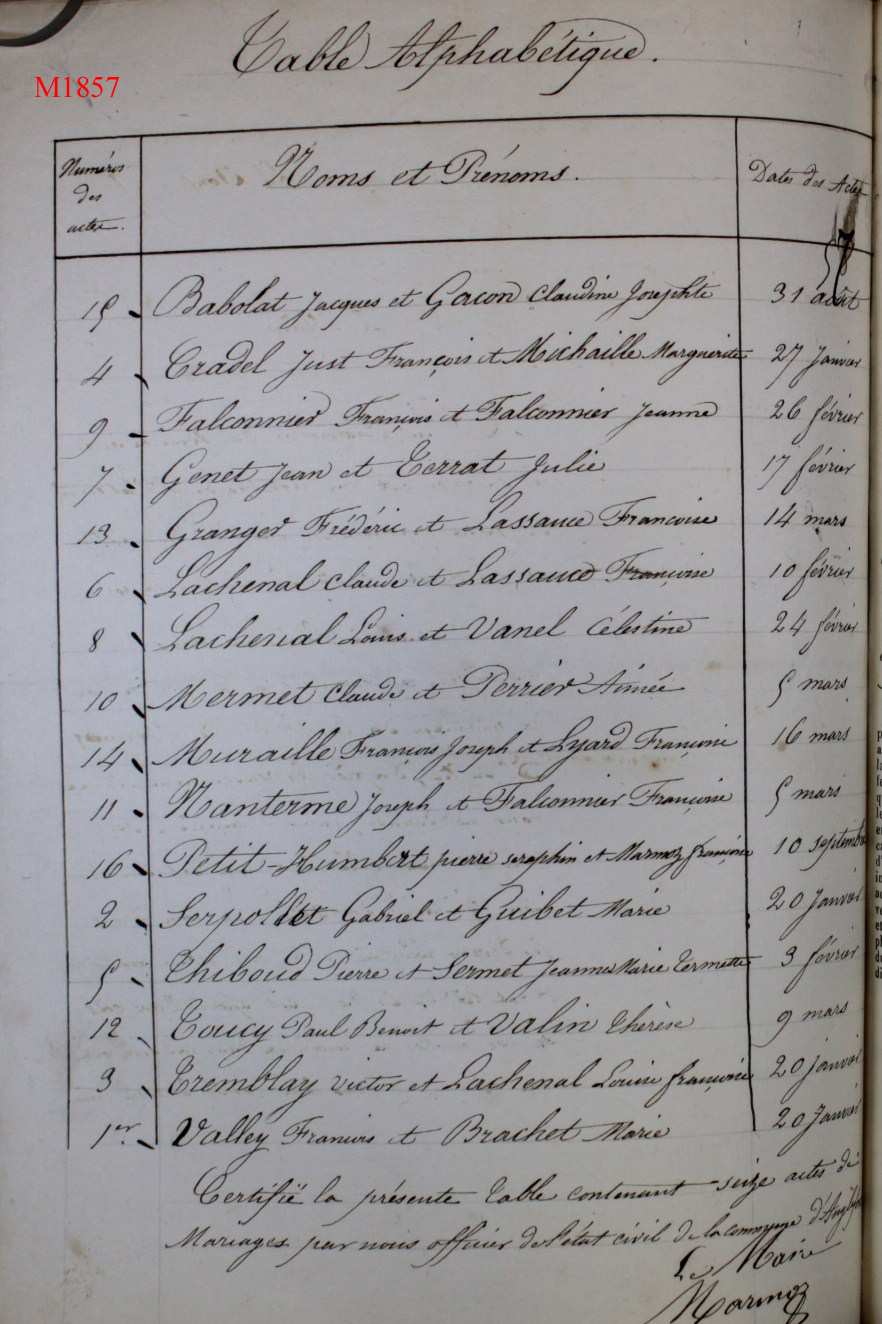 Table Alphabétique.
M1857
Numéros des actes. Noms et Prénoms. Dates des Actes
15 Babolat Jacques et Gacon Claudine Josephte 31 août
4 Cradel Just François et Michaille Marguerite 27 Janvier
9 Falconnier François et Falconnier Jeanne 26 février
7 Genet Jean et Terrat Julie 17 février
13 Granger Frédéric et Lassauce Francoise 14 mars
6 Lachenal Claude et Lassauce Françoise 10 février
8 Lachenal Louis et Vanel Célestine 24 février
10 Mermet Claude et Perrier Aimée 5 mars
14 Muraille François Joseph et Lyard Françoise 16 mars
11 Nanterme Joseph et Falconnier Françoise 5 mars
16 Petit-Humbert pierre seraphin et Marmoz françoise 10 septembre
2 Serpollet Gabriel et Guibet Marie 20 Janvier
5 Thiboud Pierre et Sermet Jeanne Marie 3 février
12 Toucy Paul Benoit et Valin Thérèse 9 mars
3 Tremblay victor et Lachenal Louise françoise 20 janvier
1er Valley Francois et Brachet Marie 20 Janvier
Certifié la présente table contenant seize actes de
Mariages par nous officier de l'état civil de la commune
Le Maire
Marmoz